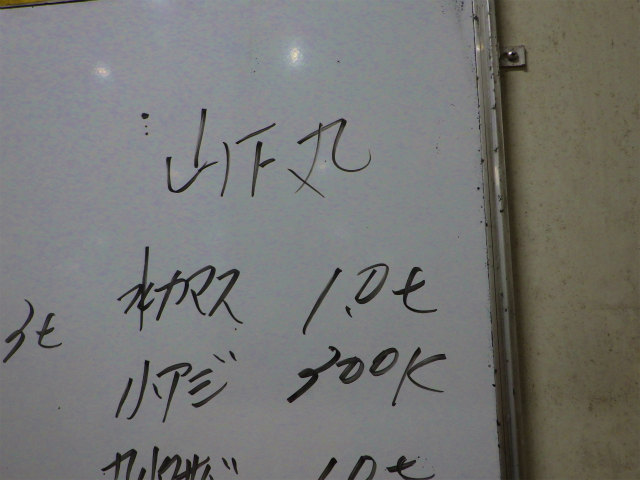 山下丸
水カマス 1.0t
3t
小アジ 300K
1.0t